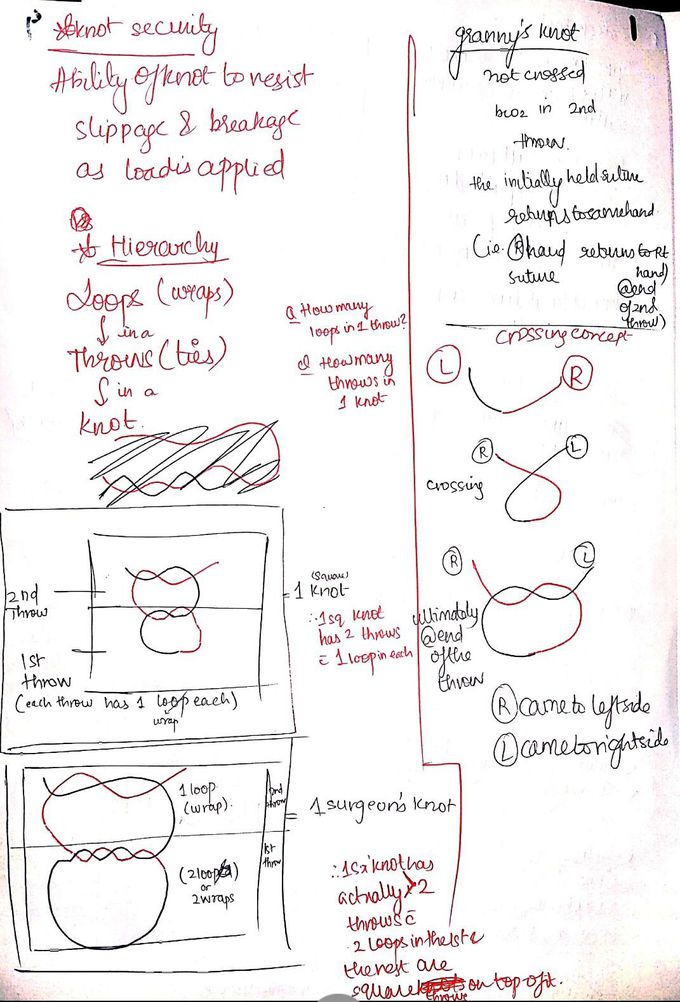 knot security
Ability of knot to resist
slippage & breakage
as load is applied
Hierarchy
Loops (wraps)
↓ in a
Throws (ties)
↓ in a
knot.
Q How many
loops in 1 throw?
Q How many
throws in
1 knot
2nd
throw
1st
throw
(each throw has 1 loop each)
wrap
(square)
1 knot
∴ 1 sq knot
has 2 throws
c̄ 1 loop in each
1 loop
(wrap).
2nd
throw
1st
throw
(2 loops)
or
2 wraps
= 1 surgeon's knot
∴ 1 Sx' knot has
actually 2
throws c̄
2 loops in the 1st &
the rest are
square throws on top of it.
1
granny's knot
not crossed
in 2nd
throw.
the initially held suture
returns to same hand
(ie. R hand returns to Rt
suture hand)
@ end
of 2nd
throw)
crossing concept
L R
R L
crossing
R L
ultimately
@ end
of the
throw
R came to left side
L came to right side